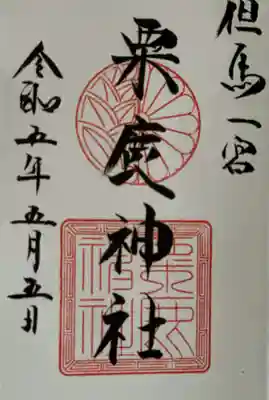 但馬一宮
粟鹿神社
令和五年五月五日